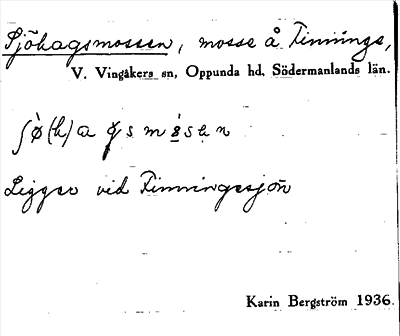 Sjöhagsmossen, mosse å Tinnings,
V. Vingåkers sn, Oppunda hd, Södermanlands län.
Ligger vid Tinningesjön
Karin Bergström 1936.